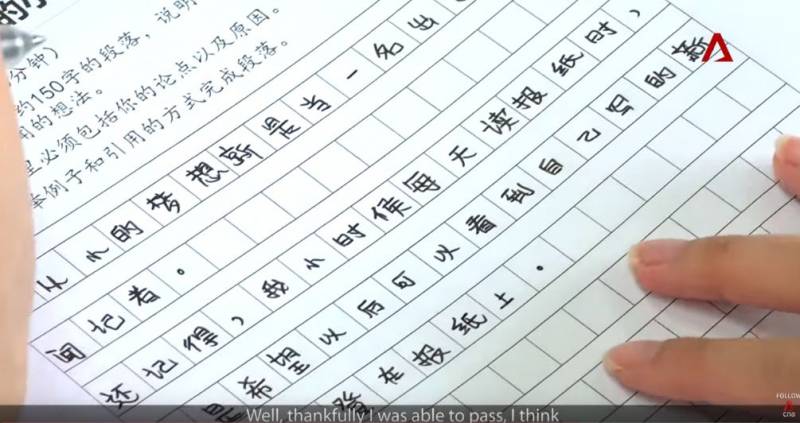 分钟)
约150字的段落，说明
的想法。
必须包括你的论点以及原因。
举例子和引用的方式完成段落。
小的梦想就是当一名出
闻记者。
还记得，我小时候每天读报纸时，
希望以后可以看到自己写的新
登在报纸上。
Well, thankfully I was able to pass, I think
FOLLOW
cna